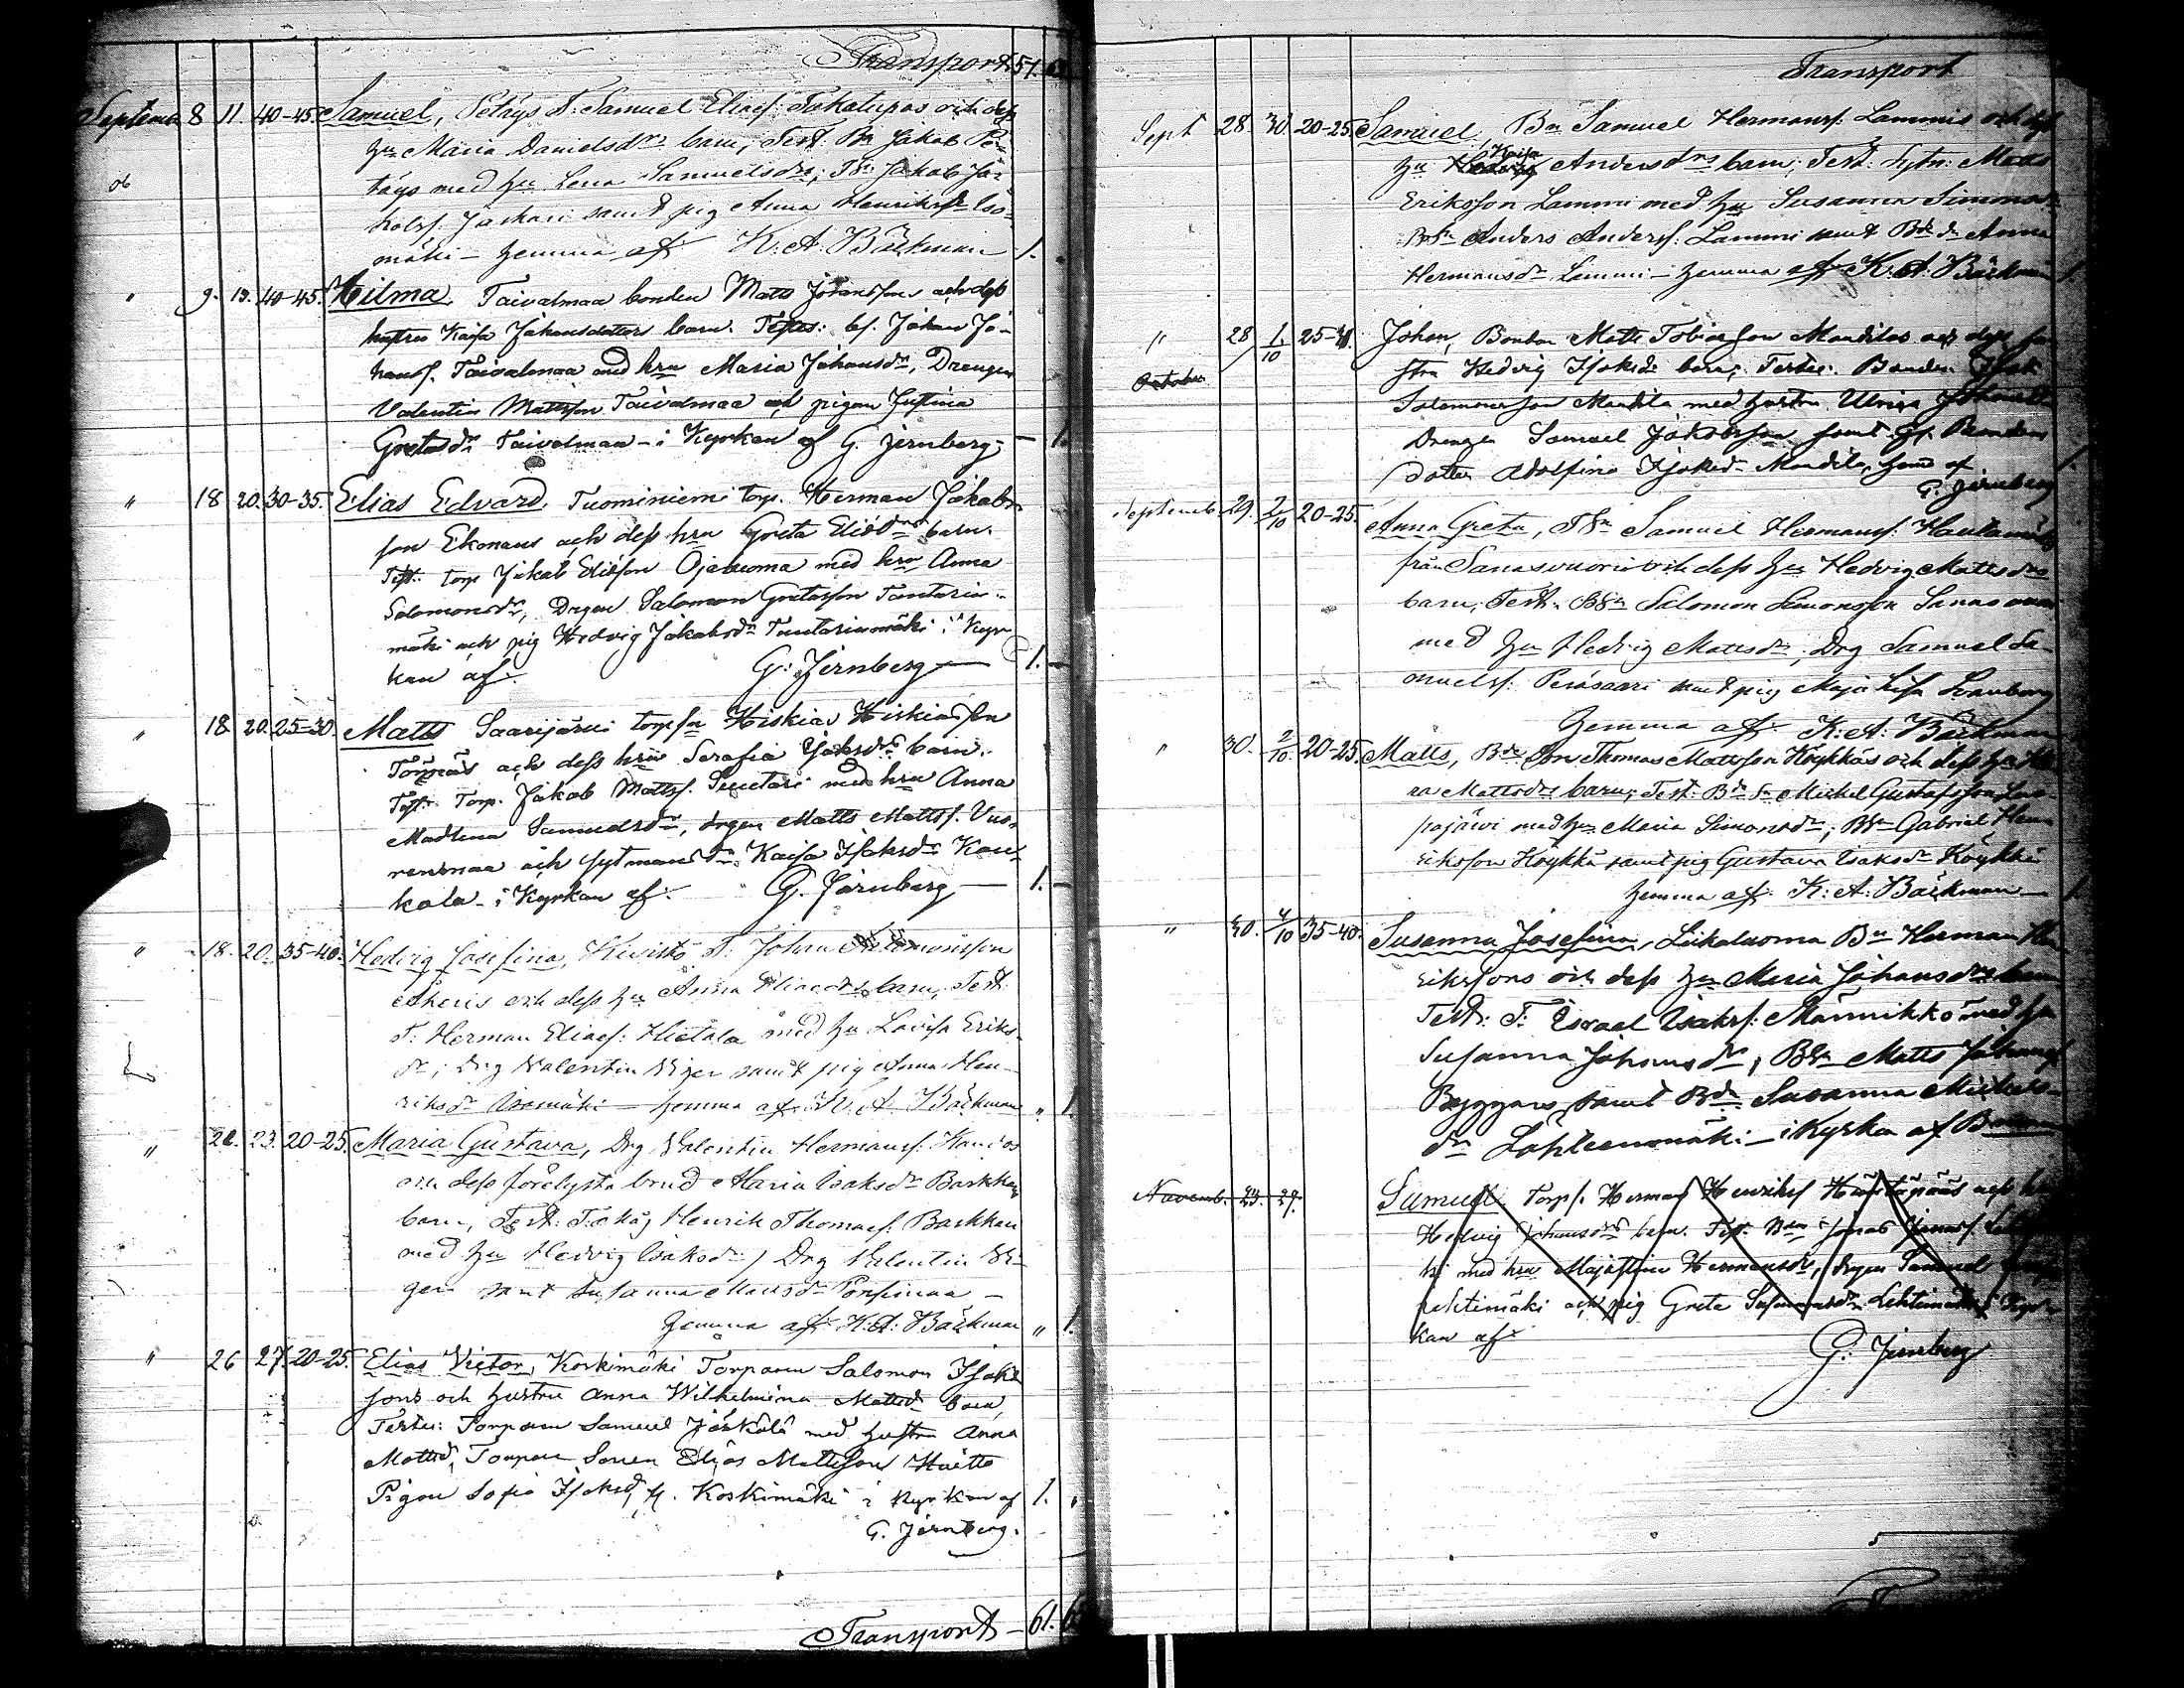 Transport 51.
September 8 11. 40-45. Samuel, Petäys T. Samuel Eliaes. Takalupas och dess
hu Maria Danielsdrs barn, Test. Bn Jakob Pe-
ob
täys med hu Lena Samuelsdr; TSn Jakob Ja-
kobs. samt pig Anna Henriksdr Iso-
mäki - hemma af K. A. Bäckman 1.
" 9. 13. 40-45. Hilma. Taivalmaa bonden Matts Johanssons och dess
hustrus Kaisa Johansdotters barn. Testes: bs. Johan Jo-
hans. Taivalmaa med hru Maria Johansdr, Drengen
Valentin Mattsson Taivalmaa och pigan Justina
Gretasdr Taivalmaa - i Kyrkan af G. Jernberg - 1.
" 18 20. 30-35. Elias Edvard. Tuominiemi torp. Herman Jakobs-
son Ekonens och dess hru Greta Eliædrs barn.
Test: torp Jakob Eliæson Ojaluoma med hru Anna
Salomonsdr, Drgen Salomon Gretasson Tantarin-
mäki och pig Hedvig Jakobsdr Tantarinmäki i Kyr-
kan af G. Jernberg 1.
" 18. 20. 25-30. Matts Saarijärvi torpsn Hiskias Hiskiasson
och dess hru Serafia Jaksdrs barn.
Test. Torp. Jakob Mattss. med hru Anna
Madlena Samuelsdr, drgen Matts Mattss. Vuo-
renmaa och sytmansdr Kaisa Isaksdr Kau-
kola - i Kyrkan af G. Jernberg 1. -
" 18. 20. 35-40. Hedvig Josefina, Kivistö T. Johan Salomonsson
Åkeris och dess hu Anna Eliaedrs barn, Test.
T. Herman Eliaes. Hietala med hu Lovisa Eriks-
dr; Drg Valentin Viger samt pig Anna Hen-
riksdr Isomäki - hemma af K. A. Bäckman " 1.
" 22. 23. 20-25. Maria Gustava, Drg Valentin Hermans. Kanios
och dess förelysta brud Maria Isaksdr Barkken
barn, Test. Henrik Thomaes. Barkken
med hu Hedvig Isaksdr, Drg Valentin Vi-
ger samt Susanna Mansdr Porsinaa -
hemma af K. A. Bäckman " 1.
" 26 27. 20-25. Elias Victor, Koskimäki Torparen Salomon Isaks
sons och hustru Anna Wilhelmina Mattsdr barn,
Testes: Torparen Samuel Jäskälä med hustru Anna
Mattsd, Torpare Sonen Elias Mattsson Huitto
Pigan Sofia Isaksd, fr. Koskimäki i Kyrkan af 1.
G. Jernberg.
Transport - 61.
Transport
Sept 28. 30. 20-25. Samuel, Bn Samuel Hermans. Lammis och dess
hu Kaisa Andersdrs barn; Test. Sytn. Matts
Eriksson Lammi med hu Susanna Simons-
BSn Anders Anders. Lammi samt Bde dr Anna
Hermansdr Lammi - hemma af K. A. Bäckman 1.
" 28 1/10 25-30. Johan, Bonden Matts Tobiasson Mandilas och dess hu
October
stru Hedvig Isaksdr barn; Testes. Bonden Isak
Salomonsson Mandila med hustru Ulrica
Drengen Samuel Jakobsson samt Bondens
dotter Adolfina Isaksdr Mandila, hem af 1.
G. Jernberg
September 29. 2/10 20-25. Anna Greta, TSn Samuel Hermans. Hautamäki
från Sanasvuori och dess hu Hedvig Mattsdrs
barn, Test. BSn Salomon Simonsson
med hu Hedvig Mattsdr; Drg Samuel Sa-
muels. Peräsaari samt pig Maja Lisa
hemma af K. A. Bäckman
" 30. 2/10 20-25. Matts, Bde Son Thomas Mattsson Köykkäs och dess hu
Mattsdrs barn; Test. Bde Sn Mickel Gustafsson
pajärvi med hu Maria Simonsdr; BSn Gabriel Hen-
riksson Köykkä samt pig Gustava Isaksdr Köykkä
hemma af K. A. Bäckman - 1.
" 30. 4/10 35-40. Susanna Josefina, Liikaluoma Bn Herman Hen-
rikssons och dess hu Maria Johansdrs barn
Test. T. Israel Isaks. Männikkö med hu
Susanna Johansdr, BSn Matts Johans.
Byggare samt Bde Susanna Mickels-
dr Löhteenmäki - i Kyrkan af
Novemb. 23. 27. Samuel Torps. Herman Henriks och hu
Hedvig Johansdrs barn. Test. Bn Jonas Jonas.
ki med hru Majastina Hermansdr, drgen Samuel
Lehtimäki och pig Greta Lehtimäki i Kyr-
kan af
G. Jernberg